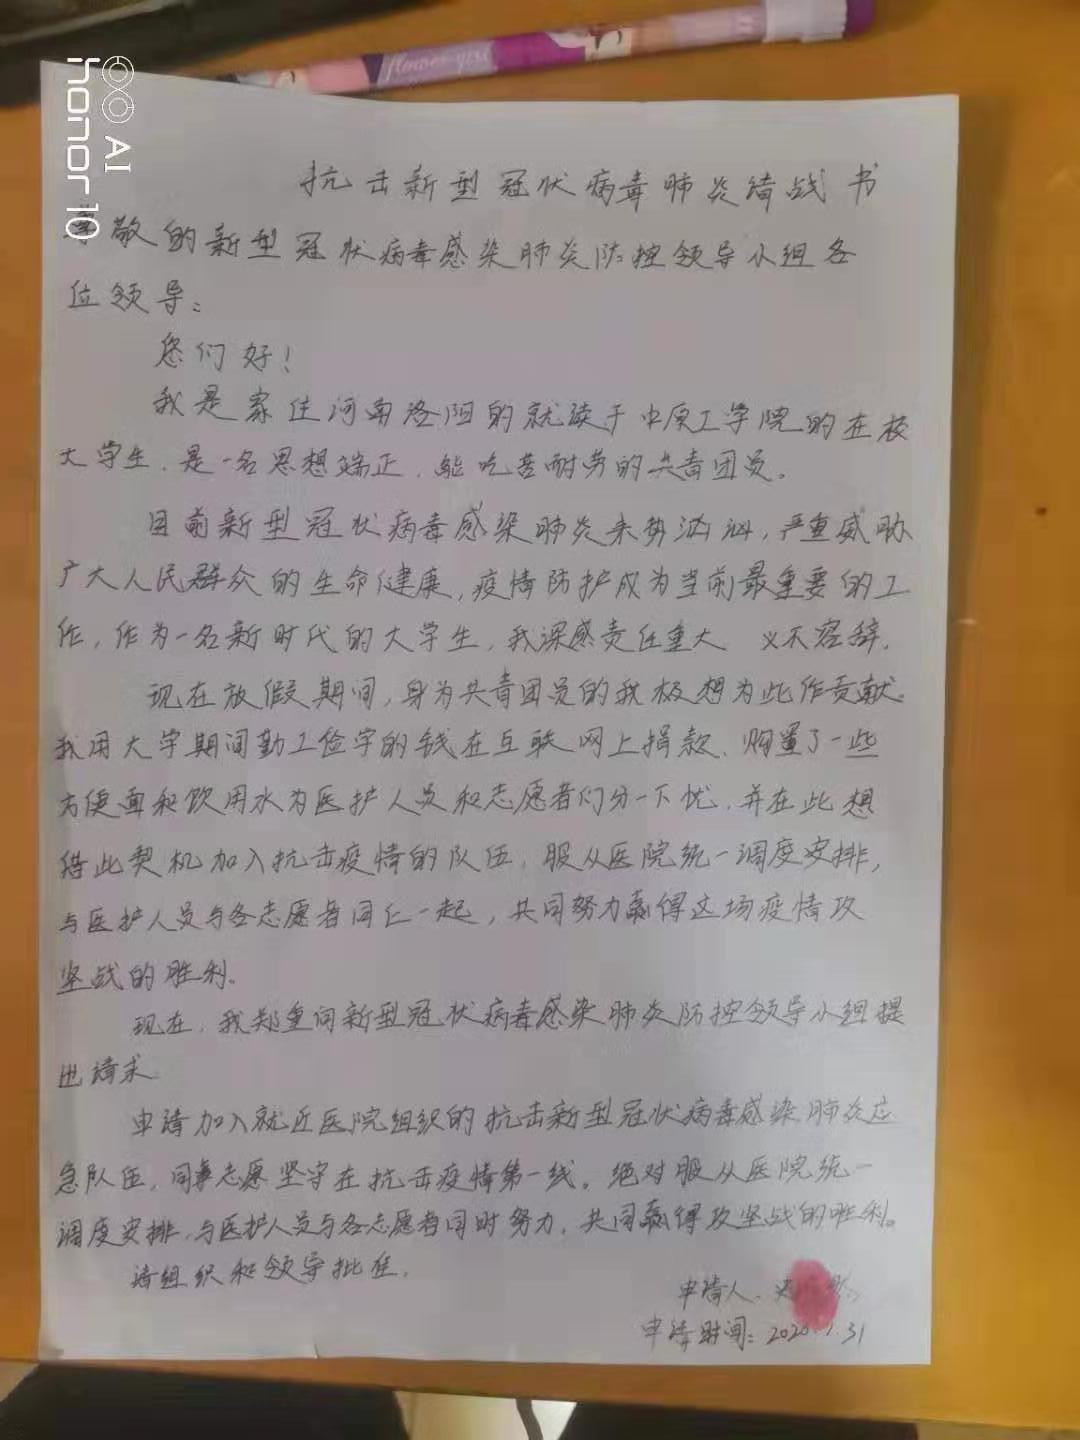 flower·girl
honor 10
AI
抗击新型冠状病毒肺炎请战书
敬的新型冠状病毒感染肺炎防控领导小组各
位领导:
您们好!
我是家住河南洛阳的就读于中原工学院的在校
大学生,是一名思想端正,能吃苦耐劳的共青团员。
目前新型冠状病毒感染肺炎来势汹汹,严重威胁
广大人民群众的生命健康,疫情防护成为当前最重要的工
作,作为一名新时代的大学生,我深感责任重大 义不容辞。
现在放假期间,身为共青团员的我极想为此作贡献。
我用大学期间勤工俭学的钱在互联网上捐款、购置了一些
方便面和饮用水为医护人员和志愿者们分一下忧,并在此想
借此契机加入抗击疫情的队伍,服从医院统一调度安排,
与医护人员与各志愿者同仁一起,共同努力赢得这场疫情攻
坚战的胜利。
现在,我郑重向新型冠状病毒感染肺炎防控领导小组提
出请求
申请加入就近医院组织的抗击新型冠状病毒感染肺炎应
急队伍,同事志愿坚守在抗击疫情第一线。绝对服从医院统一
调度安排,与医护人员与各志愿者同时努力,共同赢得攻坚战的胜利。
请组织和领导批准。
申请人:
申请时间:2020.1.31